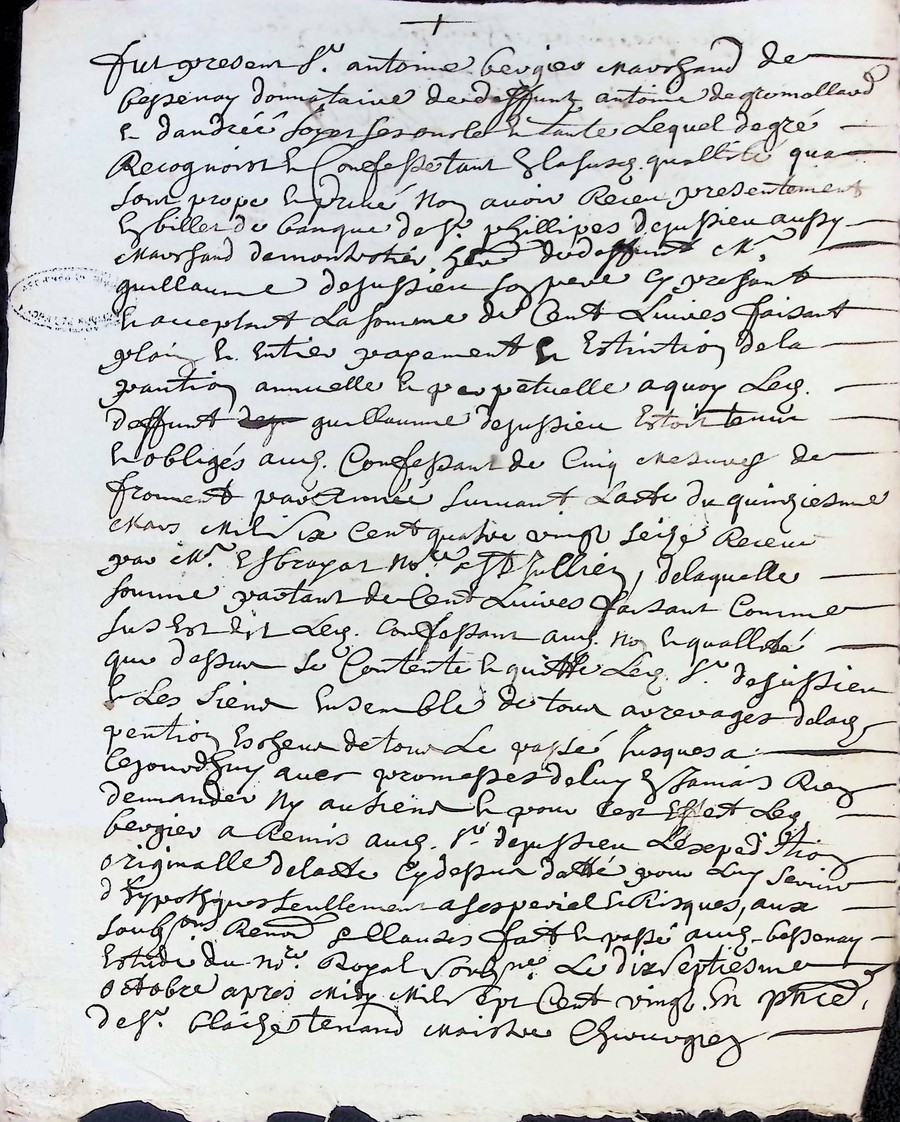 +
fut present Sr. antoine bergier marchand de
bessenay donnataire de deffuntz antoine de gromollard
& dandreé soyer ses oncle & tante Lequel de gré
Recognoist & Confesse tant En la susd. quallité qua
Son propre & privé Nom avoir Receu presentement
En billet de banque de Sr. phillipes dejussieu aussy
Marchand de montrotier, du deffunt Mr.
guillaume dejussieu son pere Cy presant
& acceptant La somme de Cent Livres faisant
plain & Entier payement & Estintion de la
pantion annuelle & perpetuelle a quoy Led.
deffunt guillaume dejussieu Estoit tenu
& obligés aud. Confessant de Cinq Mesures de
froment par Année suivant L'acte du quinziesme
Mars Mil Six Cent quatre vingt seize Receu
par Me. Esbrayat Nore. a St Jullien, delaquelle
somme partant de Cent Livres faisant Comme
sus Est dit Led. Confessant aud. Nom & quallité
que dessus se Contente & quitte Led. Sr. dejussieu
& Les Siens Ensemble de tous arrerages delad.
pention Escheus de tout Le passé Jusques a
Cejourdhuy avec promesses deluy En Jamais Rien
demander Ny au siens & pour Cest Effet Led.
bergier a Remis aud. Sr. dejussieu Lexpedition
originalle delacte Cy dessus datté pour Luy servir
d'hypotheques seullement a ses periel & Risques, aux
soubons Renons & Clauses fait & passé aud. bessenay
Estude du nore. Royal soubsne. Le dixseptiesme
octobre apres Midy Mil sept Cent vingt En pnce.
de Sr. blaize tenand Maistre Chirurgien